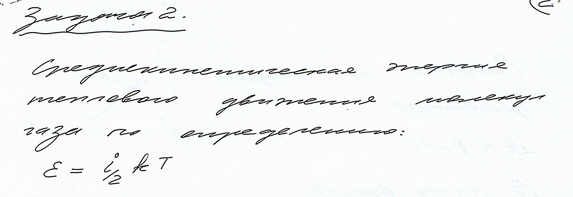 Задача 2.
Среднекинетическая энергия
теплового движения молекул
газа по определению:
ε = i/2 kT